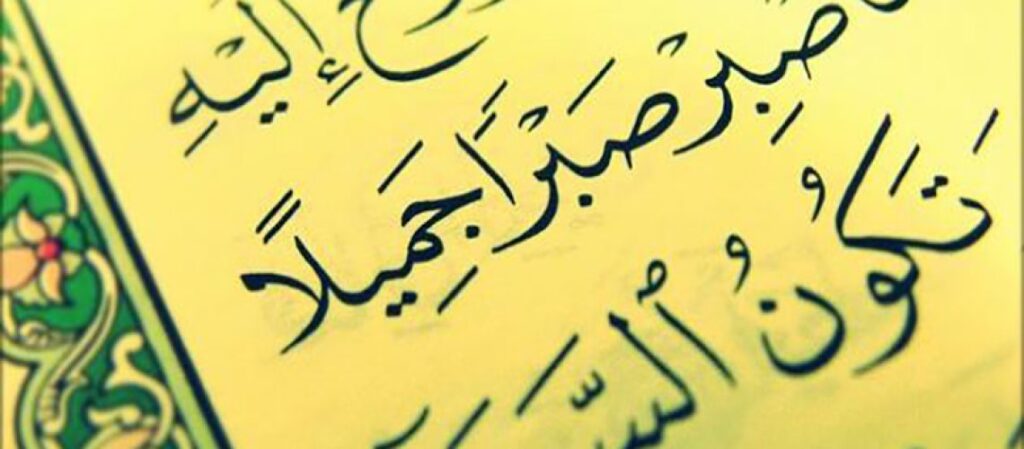 إِلَيْهِ
صْبِرْ صَبْرًا جَمِيلًا
تَكُونُ السَّ